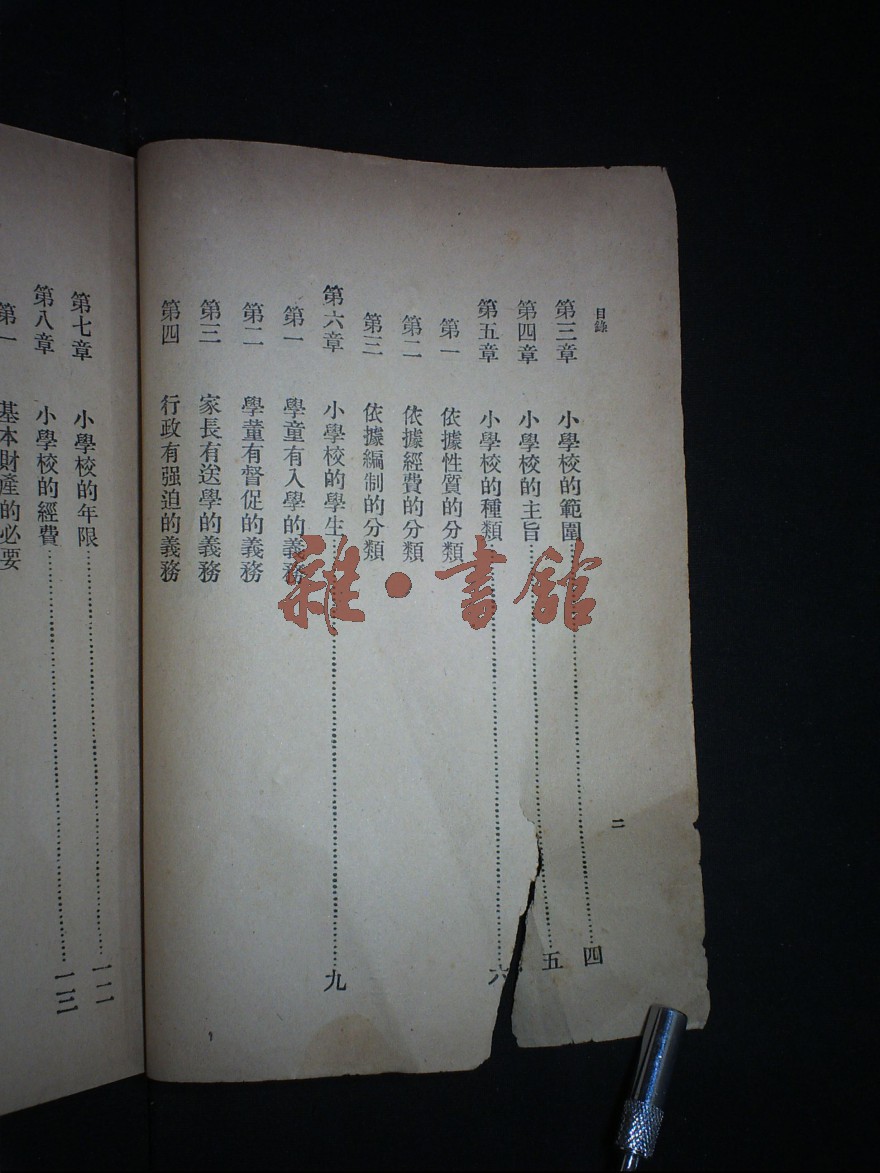 目錄
二
第三章 小學校的範圍……四
第四章 小學校的主旨……五
第五章 小學校的種類……六
第一 依據性質的分類
第二 依據經費的分類
第三 依據編制的分類
第六章 小學校的學生……九
第一 學童有入學的義務
第二 學董有督促的義務
第三 家長有送學的義務
第四 行政有强迫的義務
第七章 小學校的年限……一一
第八章 小學校的經費……一三
第一 基本財產的必要
雜·書館